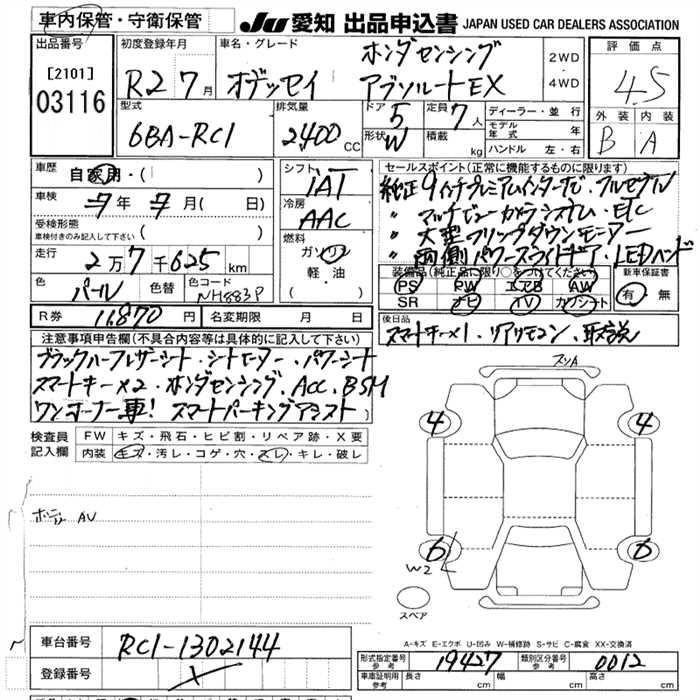 車内保管・守衛保管
JU 愛知 出品申込書 JAPAN USED CAR DEALERS ASSOCIATION
出品番号
[2101]
03116
初度登録年月
R2 7 月
車名・グレード
ホンダセンシング
オデッセイ アブソルートEX
2WD
・
4WD
評価点
4.5
外装 内装
B A
型式
6BA-RC1
排気量
2400 CC
ドア 5
形状 W
定員 7 人
積載 kg
ディーラー・並行
モデル年式 年
ハンドル 左・右
車歴
自家用・( )
車検
年 月( 日)
受検形態
車検付きのみ記入して下さい ( )
走行
2万7千625 km
色 パール
色替
色コード
NH883P
シフト
IAT
冷房
AAC
燃料
ガソリン
軽油
( )
セールスポイント(正常に機能するものに限り)
純正9インチプレミアムインターナビ・フルセグTV
〃 マルチビューカメラシステム・ETC
〃 大型フリップダウンモニター
〃 両側パワースライドドア・LEDヘッド
装備品(純正品に限り○をつけてください)
PS PW エアB AW
SR ナビ TV カワシート
新車保証書
有・無
R券 11,870 円
名変期限 月 日
後日品
スマートキー×1・リアリモコン・取説
注意事項申告欄(不具合内容等は具体的に記入して下さい)
ブラックハーフレザーシート・シートヒーター・パワーシート
スマートキー×2・ホンダセンシング、ACC、BSM
ワンオーナー車! スマートパーキングアシスト
検査員
記入欄
FW キズ・飛石・ヒビ割・リペア跡・X要
内装 キズ・汚レ・コゲ・穴・スレ・キレ・破レ
AU
スリA
4 4
6 6
W2
スペア
A-キズ E-エクボ U-凹み W-補修跡 S-サビ C-腐食 XX-交換済
車台番号 RC1-1302144
登録番号
形式指定番号
参考
19427
類別区分番号
参考
0012
車庫証明用
参考
長さ cm 幅 cm 高さ cm